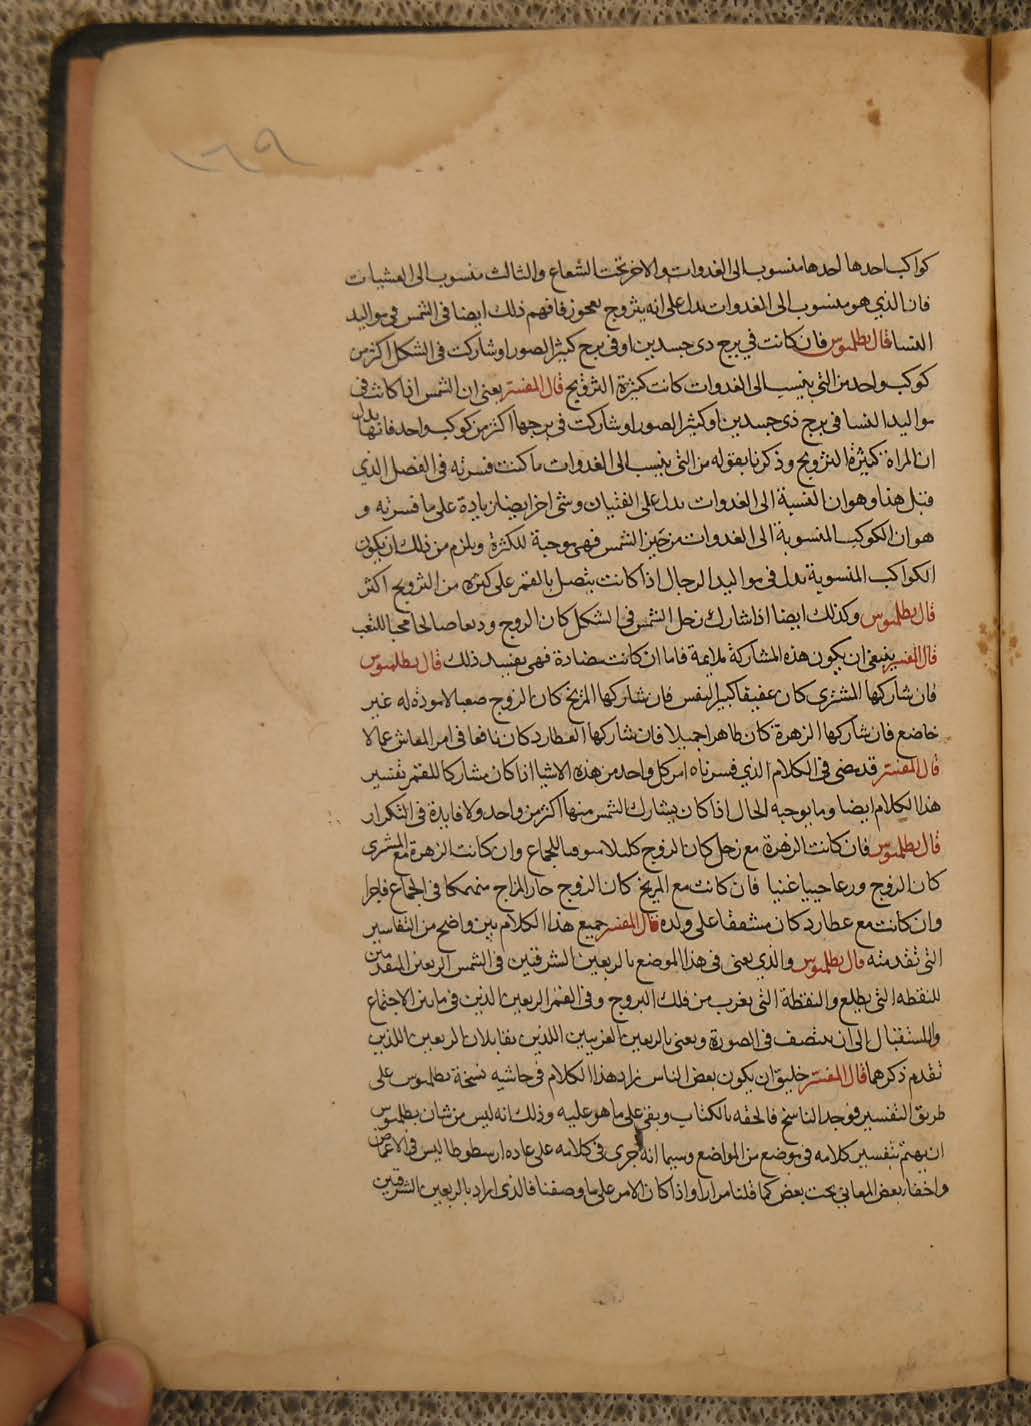 ١٦٩
كواكب احدها احدها منسوب الى الغدوات والاخر تحت الشعاع والثالث منسوب الى العشيات
فان الذي هو منسوب الى الغدوات يدل على انه يتزوج بعجوز فافهم ذلك ايضا فى الشمس فى مواليد
النسا قال بطلميوس فان كانت في برج ذى جسدين او فى برج كثير الصور او شاركت فى الشكل اكثر من
كوكب واحد من التي ينسب الى الغدوات كانت كثيرة التزويج قال المفسر يعنى ان الشمس اذا كانت فى
مواليد النسا فى برج ذى جسدين او كثير الصور او شاركت فى برجها اكثر من كوكب واحد فانها يدل
ان المراة كثيرة التزويج وذكرنا بقوله من التى ينسب الى الغدوات ما كنت فسرته فى الفصل الذي
قبل هذا وهو ان النسبة الى الغدوات يدل على الفتيان وشى اخر ايضا زيادة على ما فسرته و
هو ان الكوكب المنسوبة الى الغدوات من حيز الشمس فهى موجبة للكثرة ويلزم من ذلك ان يكون
الكواكب المنسوبة يدل فى مواليد الرجال اذا كانت يتصل بالقمر على كثرة من التزويج اكثر
قال بطلميوس وكذلك ايضا اذا شارك زحل الشمس فى الشكل كان الزوج ودعا صالحا محبا للتعب
قال المفسر ينبغى ان يكون هذه المشاركة ملايمة فاما ان كانت مضادة فهى يفسد ذلك قال بطلميوس
فان شاركها المشترى كان عفيفا كبير النفس فان شاركها المريخ كان الزوج صعبا لا مودة له غير
خاضع فان شاركها الزهرة كان طاهرا جميلا فان شاركها العطارد كان نافعا فى امر المعاش عمالا
قال المفسر قد مضى فى الكلام الذي فسرناه امر كل واحد من هذه الاشيا اذا كان مشاركا للقمر تفسير
هذا الكلام ايضا وما يوجبه الحال اذا كان يشارك الشمس منها اكثر من واحد ولا فايدة فى التكرار
قال بطلميوس فان كانت الزهرة مع زحل كان الزوج للجماع وان كانت الزهرة مع المشترى
كان الزوج ورعا حييا غنيا فان كانت مع المريخ كان الزوج حار المزاج منهمكا فى الجماع فاجرا
وان كانت مع عطارد كان مشفقا على ولده قال المفسر جميع هذا الكلام بين واضح من التفاسير
التى تقدمته قال بطلميوس والذي يعنى فى هذا الموضع بالربعين الشرقيين فى الشمس الربعين المتقدمين
للنقطه التى يطلع والنقطة التى يغرب من فلك البروج وفى القمر الربعين الذين فى ما بين الاجتماع
والاستقبال الى ان ينتصف فى الصورة ويعنى بالربعين الغربيين اللذين يقابلان الربعين اللذين
تقدم ذكرهما قال المفسر خليق ان يكون بعض الناس زاد هذا الكلام فى حاشيه نسخة بطلميوس على
طريق التفسير فوجد الناسخ فالحقه بالكتاب وبقى على ما هو عليه وذلك انه ليس من شان بطلميوس
ان يهتم بتفسير كلامه فى موضع من المواضع وسيما انه اجرى فى كلامه على عاده ارسطوطاليس فى الاغماض
واخفاء بعض المعانى تحت بعض كما قلنا مرارا واذا كان الامر على ما وصفنا فالذى اراد بالربعين الشرقيين